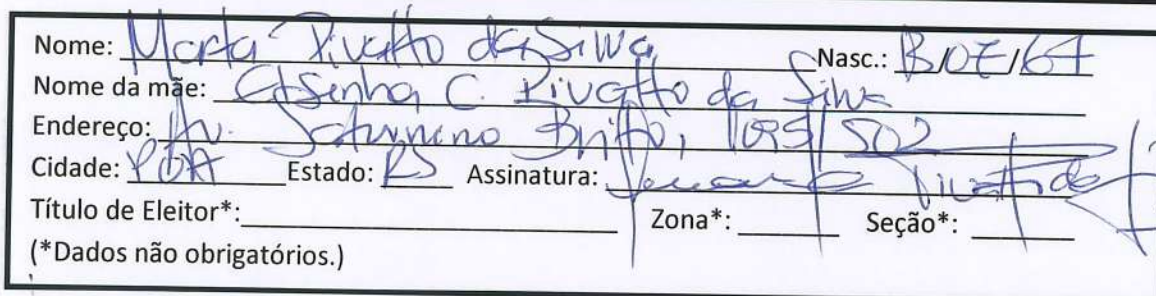 Nome: Marta Pivatto da Silva Nasc.: 13/07/64
Nome da mãe: C. Pivatto da Silva
Endereço: Av. Saturnino Brito, 1095/502
Cidade: POA Estado: RS Assinatura:
Título de Eleitor*: Zona*: Seção*:
(*Dados não obrigatórios.)